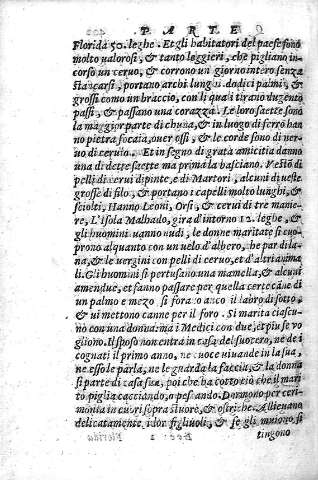 PARTE
Florida 50. leghe. Et gli habitatori del paese sono
molto ualorosi, & tanto leggieri, che pigliano in
corso un ceruo, & corrono un giorno intero senza
stancarsi, portano archi lunghi dodici palmi, &
grossi come un braccio, con li quai tirano dugento
passi, & passano una corazza. Le loro saette sono
la maggior parte di channa, & in luogo di ferro han
no pietra focaia, ouer ossi, & le corde sono di ner
uo di ceruio. Et in segno di grata amicitia danno
una di dette saette ma prima la basciano. Vestō di
pelli di cerui dipinte, e di Martori, alcuni di ueste
grosse di filo, & portano i capelli molto lunghi, &
sciolti, Hanno Leoni, Orsi, & cerui di tre manie
re, L'isola Malhado, gira d'intorno 12. leghe, &
gli huomini uanno nudi, le donne maritate si cuo
prono alquanto con un uelo d'albero, che par di la
na, & le uergini con pelli di ceruo, et d'altri anima
li. Gli huomini si pertusano una mamella, & alcuni
amendue, et fanno passare per quella certe cāne di
un palmo e mezo si forano anco il labro di sotto,
& ui mettono canne per il foro. Si marita ciascu
no con una donna, ma i Medici con due, et piu se uo
gliono. Il sposo non entra in casa del suocero, ne de i
cognati il primo anno, ne cuoce uiuande in la sua,
ne esso le parla, ne le guarda la faccia, & la donna
si parte di casa sua, poi che ha cotto ciò che il mari
to piglia cacciando, o pescando. Dormono per ceri
monia in cuori sopra stuore, & ostriche. Alleuano
delicatamente i lor figliuoli, & se gli muoiono si
tingono